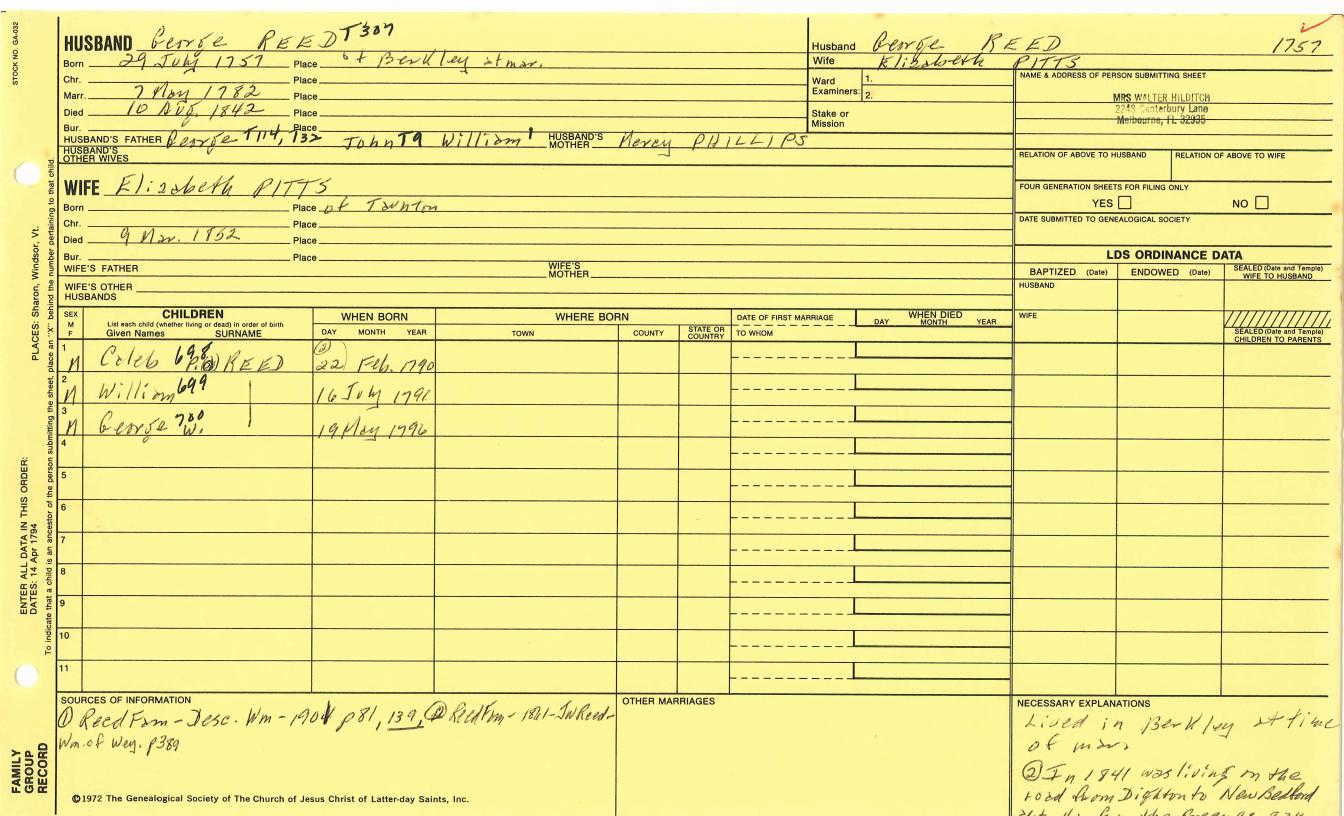 STOCK NO. GA-032
HUSBAND George REED T307
Born 29 July 1757 Place of Berkley at mar.
Chr. Place
Marr. 7 May 1782 Place
Died 10 Aug. 1842 Place
Bur. Place
HUSBAND'S FATHER George T114, T32 John T9 William 1 HUSBAND'S MOTHER Mercy PHILLIPS
HUSBAND'S OTHER WIVES
WIFE Elizabeth PITTS
Born Place of Taunton
Chr. Place
Died 9 Mar. 1852 Place
Bur. Place
WIFE'S FATHER WIFE'S MOTHER
WIFE'S OTHER HUSBANDS
Husband George REED 1757
Wife Elizabeth PITTS
Ward Examiners: 1.
2.
Stake or Mission
NAME & ADDRESS OF PERSON SUBMITTING SHEET
MRS WALTER HILDITCH
Canterbury Lane
Melbourne, FL 32935
RELATION OF ABOVE TO HUSBAND RELATION OF ABOVE TO WIFE
FOUR GENERATION SHEETS FOR FILING ONLY
YES NO
DATE SUBMITTED TO GENEALOGICAL SOCIETY
LDS ORDINANCE DATA
BAPTIZED (Date) ENDOWED (Date) SEALED (Date and Temple) WIFE TO HUSBAND
HUSBAND
WIFE
SEALED (Date and Temple) CHILDREN TO PARENTS
SEX M F
CHILDREN
List each child (whether living or dead) in order of birth
Given Names SURNAME
WHEN BORN
DAY MONTH YEAR
WHERE BORN
TOWN COUNTY STATE OR COUNTRY
DATE OF FIRST MARRIAGE
TO WHOM
WHEN DIED
DAY MONTH YEAR
1 M Caleb 698 REED (2) 22 Feb. 1790
2 M William 699 16 July 1791
3 M George W. 700 19 May 1796
4
5
6
7
8
9
10
11
SOURCES OF INFORMATION
① Reed Fam - Desc. Wm - 1901 p81, 139, ② Reed Fam - 1861 - JW Reed -
Wm. of Wey. p389
OTHER MARRIAGES
NECESSARY EXPLANATIONS
Lived in Berkley at time
of mar.
② In 1841 was living on the
road from Dighton to New Bedford
©1972 The Genealogical Society of The Church of Jesus Christ of Latter-day Saints, Inc.
FAMILY GROUP RECORD
ENTER ALL DATA IN THIS ORDER:
DATES: 14 Apr 1794
PLACES: Sharon, Windsor, Vt.
To indicate that a child is an ancestor of the person submitting the sheet, place an "X" behind the number pertaining to that child.